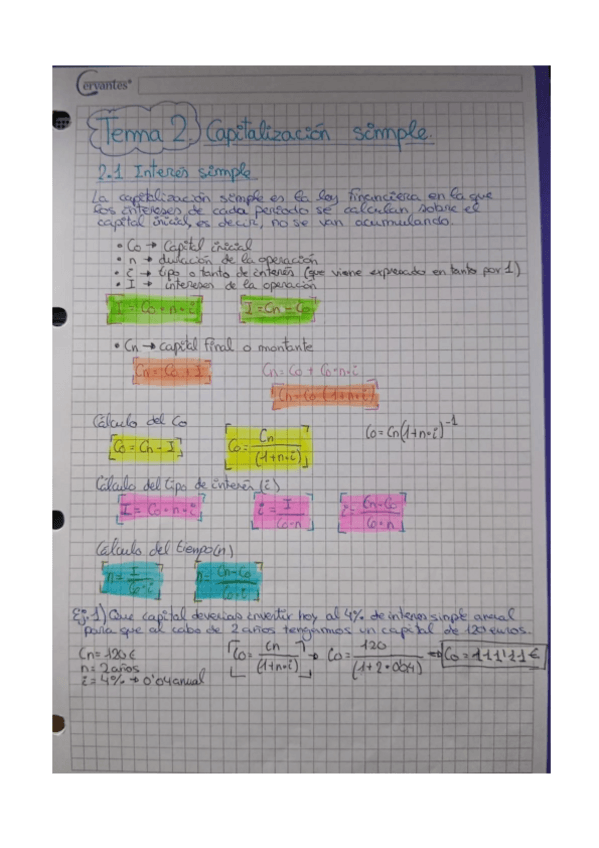 Cervantes®
Tema 2 Capitalización simple.
2.1 Interés simple
La capitalización simple es la ley financiera en la que
los intereses de cada periodo se calculan sobre el
capital inicial, es decir, no se van acumulando.
• Co → Capital inicial
• n → duración de la operación
• i → tipo o tanto de interés (que viene expresado en tanto por 1)
• I → intereses de la operación
I = Co · n · i    I = Cn - Co
• Cn → capital final o montante
Cn = Co + I    Cn = Co + Co·n·i
Cn = Co (1+n·i)
Cálculo del Co
Co = Cn - I    Co = Cn / (1+n·i)    Co = Cn(1+n·i)^-1
Cálculo del tipo de interés (i)
I = Co · n · i    i = I / Co·n    i = Cn-Co / Co·n
Cálculo del tiempo (n)
n = I / Co·i    n = Cn-Co / Co·i
Ej. 1) Que capital deverías invertir hoy al 4% de interes simple anual
para que al cabo de 2 años tengamos un capital de 120 euros.
Cn = 120€    Co = Cn / (1+n·i) → Co = 120 / (1+2·0'04) ⇒ Co = 111'11€
n = 2 años
i = 4% → 0'04 anual